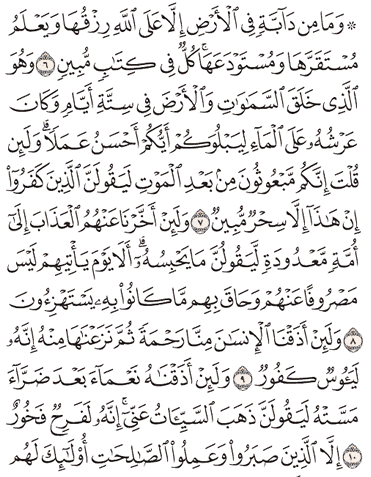 ۞ وَمَا مِن دَآبَّةٍ فِي ٱلْأَرْضِ إِلَّا عَلَى ٱللَّهِ رِزْقُهَا وَيَعْلَمُ
مُسْتَقَرَّهَا وَمُسْتَوْدَعَهَاۚ كُلٌّ فِي كِتَٰبٍ مُّبِينٍ ٦ وَهُوَ
ٱلَّذِي خَلَقَ ٱلسَّمَٰوَٰتِ وَٱلْأَرْضَ فِي سِتَّةِ أَيَّامٍ وَكَانَ
عَرْشُهُۥ عَلَى ٱلْمَآءِ لِيَبْلُوَكُمْ أَيُّكُمْ أَحْسَنُ عَمَلًاۗ وَلَئِن
قُلْتَ إِنَّكُم مَّبْعُوثُونَ مِنۢ بَعْدِ ٱلْمَوْتِ لَيَقُولَنَّ ٱلَّذِينَ كَفَرُوٓا۟
إِنْ هَٰذَآ إِلَّا سِحْرٌ مُّبِينٌ ٧ وَلَئِنْ أَخَّرْنَا عَنْهُمُ ٱلْعَذَابَ إِلَىٰٓ
أُمَّةٍ مَّعْدُودَةٍ لَّيَقُولُنَّ مَا يَحْبِسُهُۥٓۗ أَلَا يَوْمَ يَأْتِيهِمْ لَيْسَ
مَصْرُوفًا عَنْهُمْ وَحَاقَ بِهِم مَّا كَانُوا۟ بِهِۦ يَسْتَهْزِءُونَ
٨ وَلَئِنْ أَذَقْنَا ٱلْإِنسَٰنَ مِنَّا رَحْمَةً ثُمَّ نَزَعْنَٰهَا مِنْهُ إِنَّهُۥ
لَيَـُٔوسٌ كَفُورٌ ٩ وَلَئِنْ أَذَقْنَٰهُ نَعْمَآءَ بَعْدَ ضَرَّآءَ
مَسَّتْهُ لَيَقُولَنَّ ذَهَبَ ٱلسَّيِّـَٔاتُ عَنِّيٓۚ إِنَّهُۥ لَفَرِحٌ فَخُورٌ
١٠ إِلَّا ٱلَّذِينَ صَبَرُوا۟ وَعَمِلُوا۟ ٱلصَّٰلِحَٰتِ أُو۟لَٰٓئِكَ لَهُم